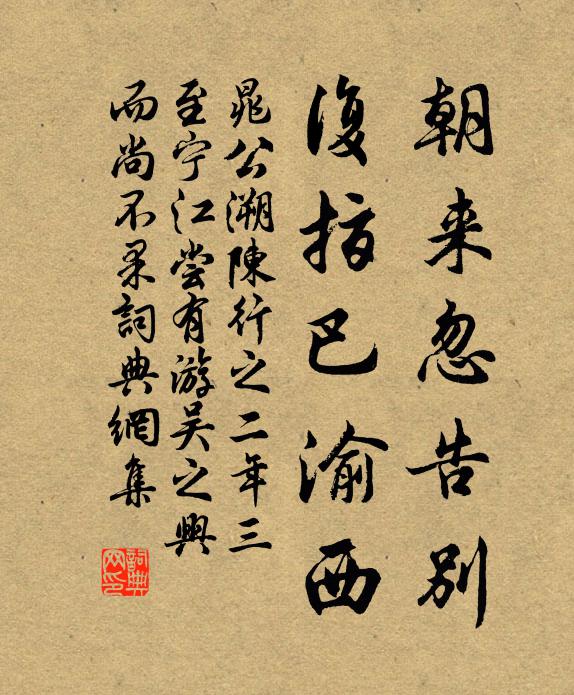 朝来忽告别
復指巴渝西
晁公溯陳行之二年三
至宁江尝有游吴之興
而尚不果詞典網集
詞典
网印